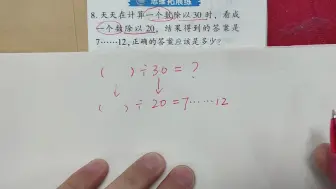 思维拓展练
8.天天在计算一个数除以30时，看成
一个数除以20，结果得到的答案是
7……12,正确的答案应该是多少?
( )÷30=?
( )÷20=7……12